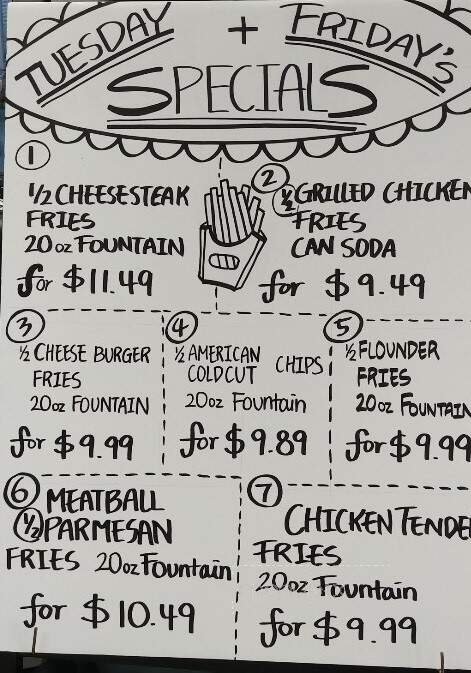 TUESDAY + FRIDAY'S
SPECIALS
1
1/2 CHEESESTEAK
FRIES
20 oz FOUNTAIN
for $11.49
2
1/2 GRILLED CHICKEN
FRIES
CAN SODA
for $9.49
3
1/2 CHEESE BURGER
FRIES
20oz FOUNTAIN
for $9.99
4
1/2 AMERICAN
COLDCUT CHIPS
20oz Fountain
for $9.89
5
1/2 FLOUNDER
FRIES
20oz FOUNTAIN
for $9.99
6
MEATBALL
1/2 PARMESAN
FRIES 20oz Fountain
for $10.49
7
CHICKEN TENDE
FRIES
20oz Fountain
for $9.99